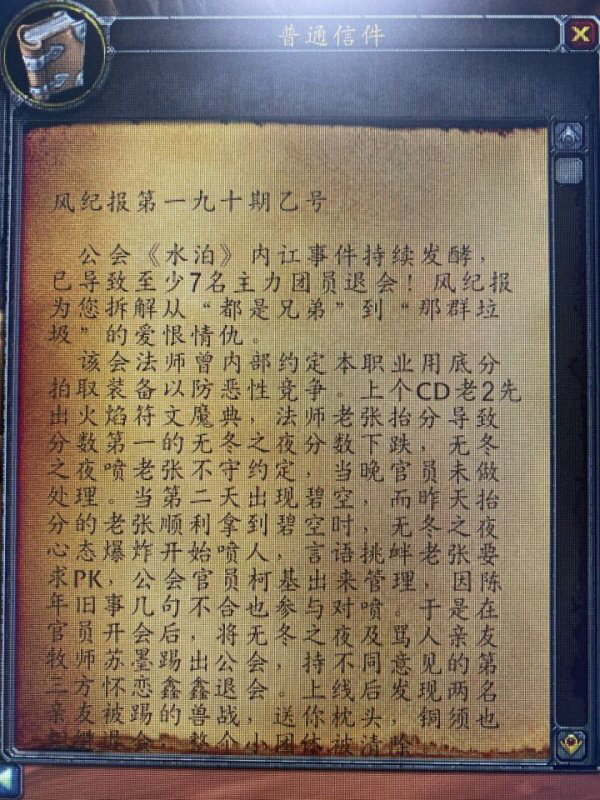 普通信件
风纪报第一九十期乙号
公会《水泊》内讧事件持续发酵，
已导致至少7名主力团员退会！风纪报
为您拆解从“都是兄弟”到“那群垃
圾”的爱恨情仇。
该会法师曾内部约定本职业用底分
拍取装备以防恶性竞争。上个CD老2先
出火焰符文魔典，法师老张抬分导致
分数第一的无冬之夜分数下跌，无冬
之夜喷老张不守约定，当晚官员未做
处理。当第二天出现碧空，而昨天抬
分的老张顺利拿到碧空时，无冬之夜
心态爆炸开始喷人，言语挑衅老张要
求PK，公会官员柯基出来管理，因陈
年旧事几句不合也参与对喷。于是在
官员开会后，将无冬之夜及骂人亲友
牧师苏墨踢出公会，持不同意见的第
三方怀恋鑫鑫退会。上线后发现两名
亲友被踢的兽战，送你枕头，铜须也
相继退会，整个小团体被清除